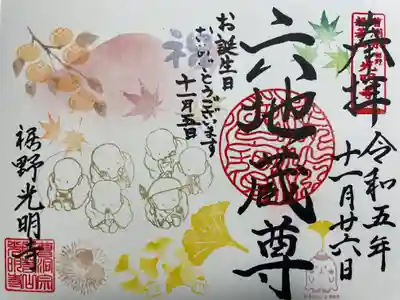 奉拝
令和五年
十一月廿六日
六地蔵尊
祝
お誕生日
おめでとうございます
十一月五日
裾野光明寺